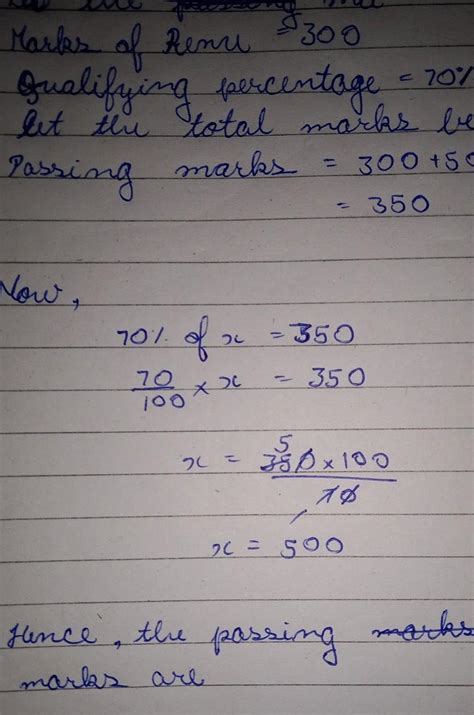 passing
Marks of Renu = 300
Qualifying percentage = 70%
let the total marks be
Passing marks = 300 + 50
= 350
Now,
70% of x = 350
70/100 × x = 350
5
x = 350 × 100 / 70
x = 500
Hence, the passing marks
marks are